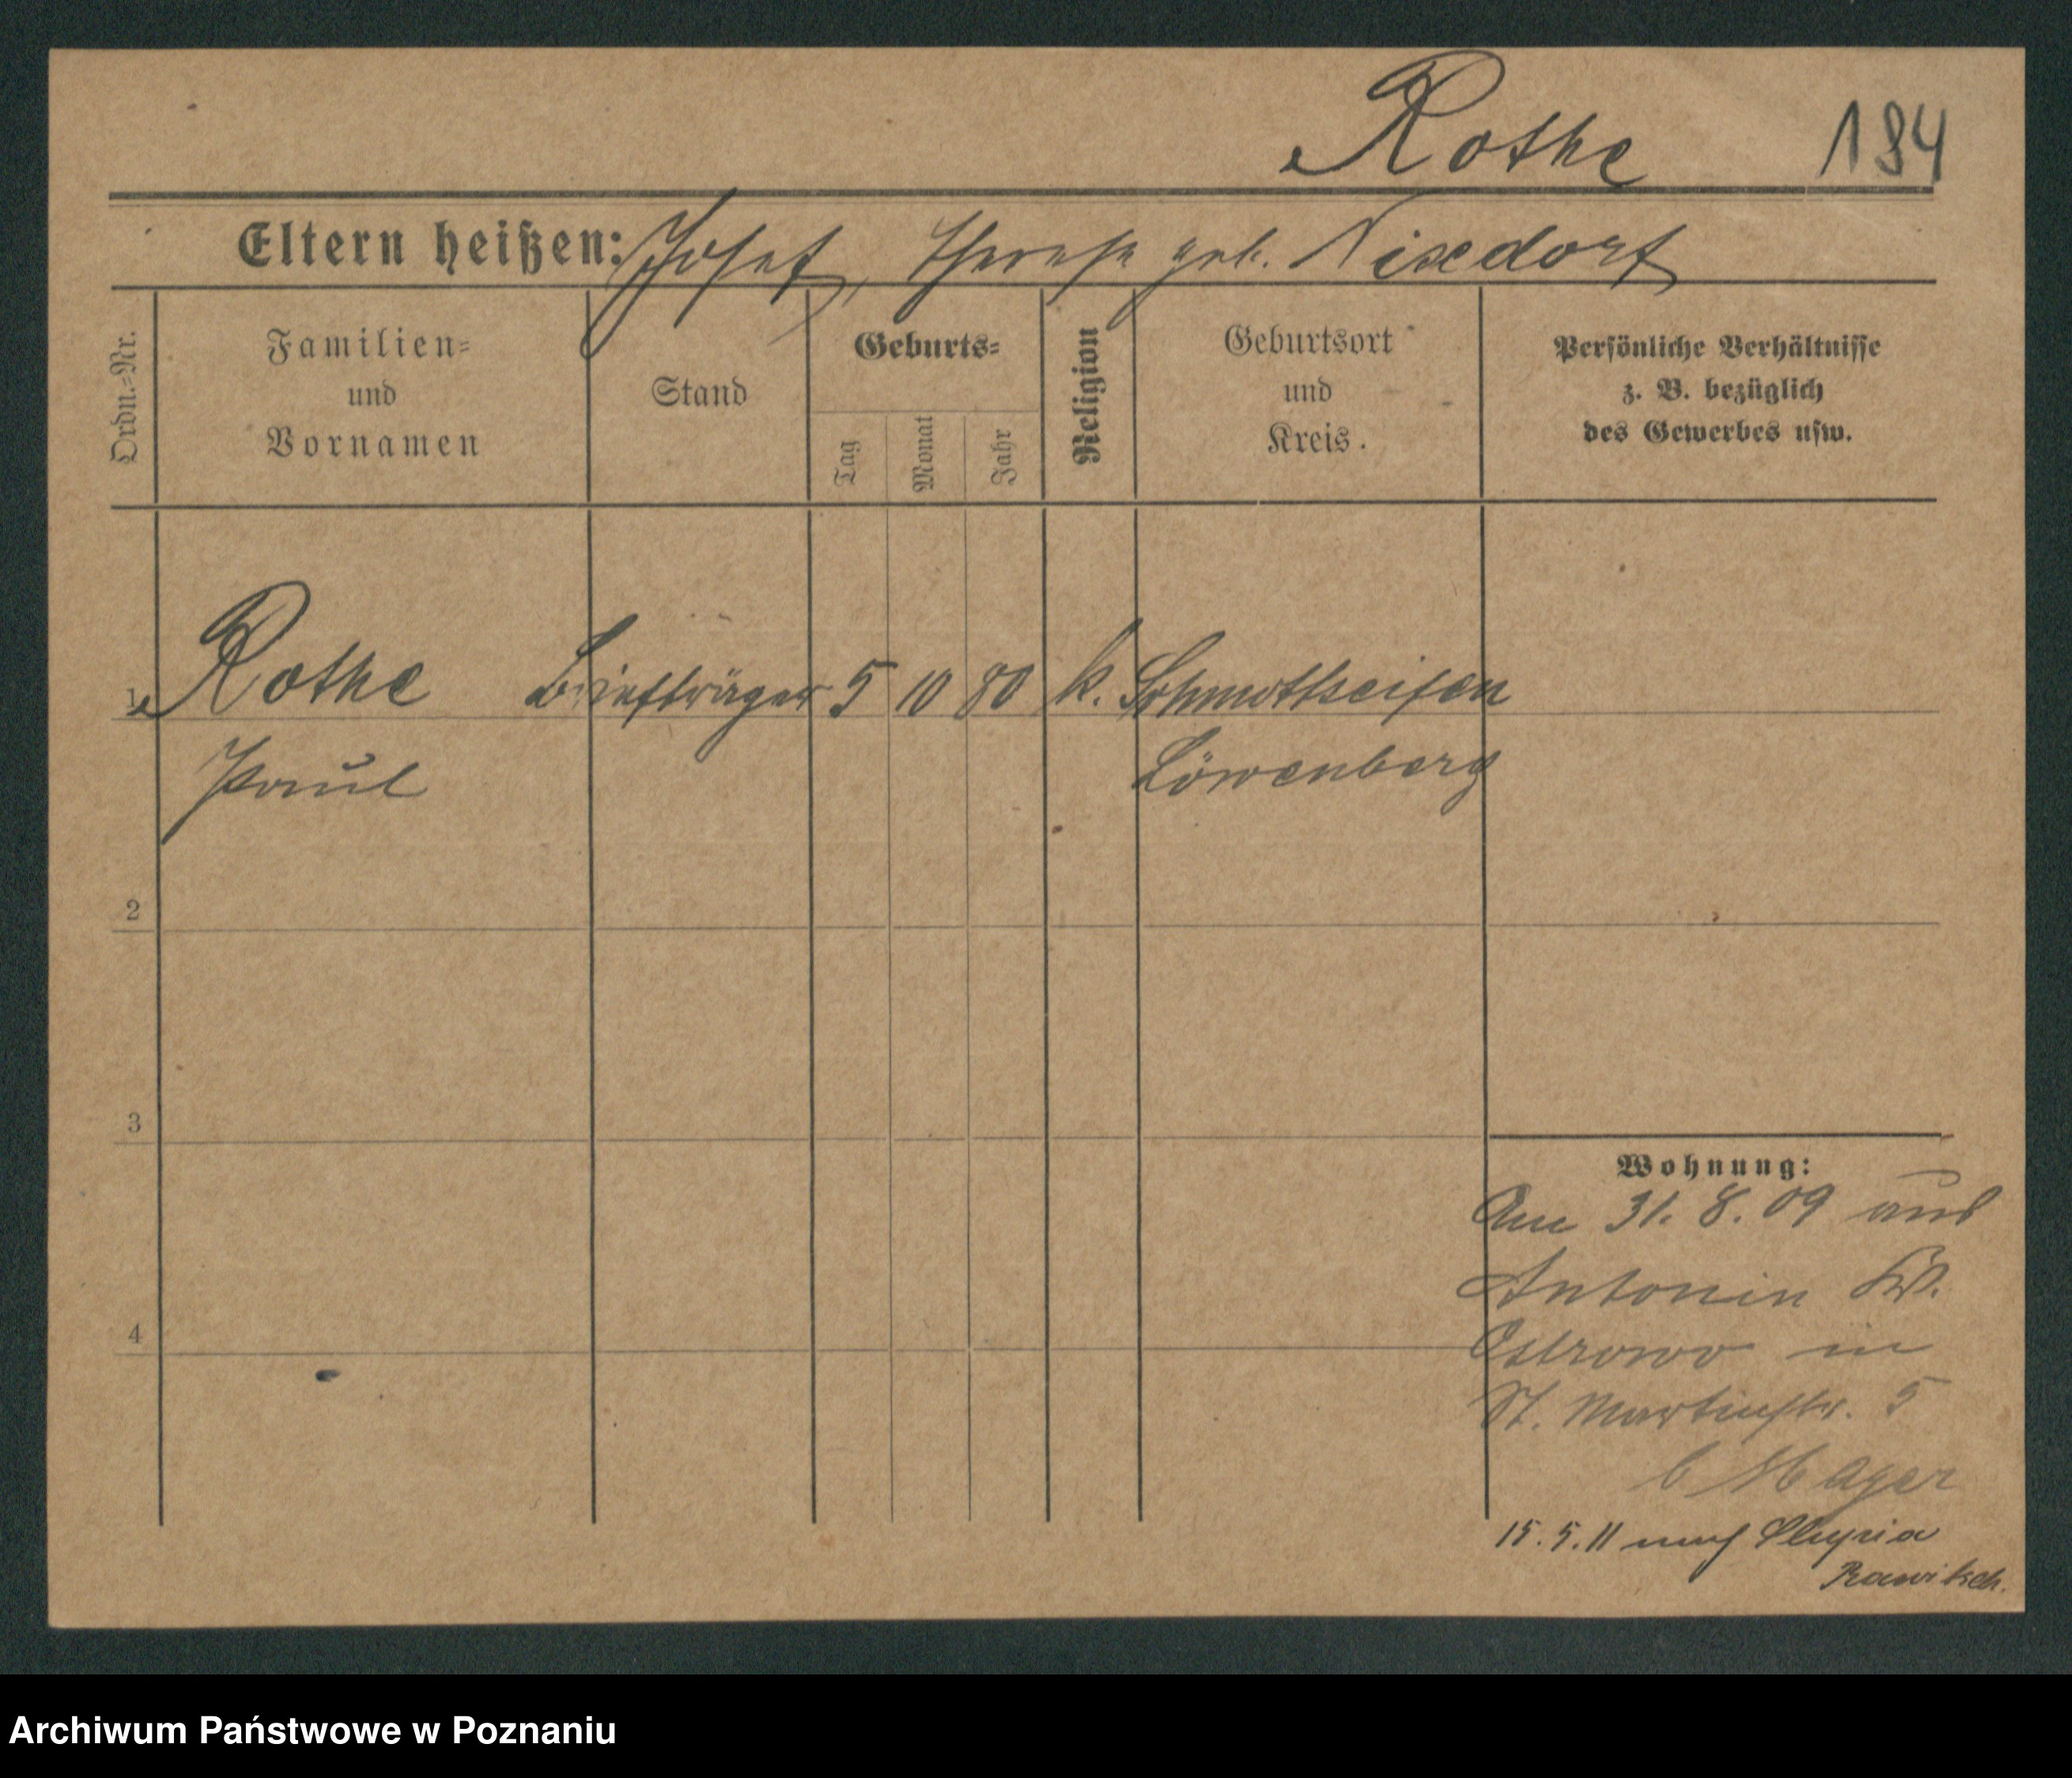 Rothe 184
Eltern heißen: Josef, Therese geb. Nixdorf
Ordn.=Nr.
Familien=
und
Vornamen
Stand
Geburts=
Tag
Monat
Jahr
Religion
Geburtsort
und
Kreis.
Persönliche Verhältnisse
z. B. bezüglich
des Gewerbes usw.
1 Rothe Briefträger 5 10 80 k. Schmottseifen
Paul Löwenberg
2
3
4
Wohnung:
Am 31. 8. 09 aus
Antonin Kr.
Ostrowo in
St. Martinstr. 5
b Mager
15. 5. 11 nach
Rawitsch.
Archiwum Państwowe w Poznaniu